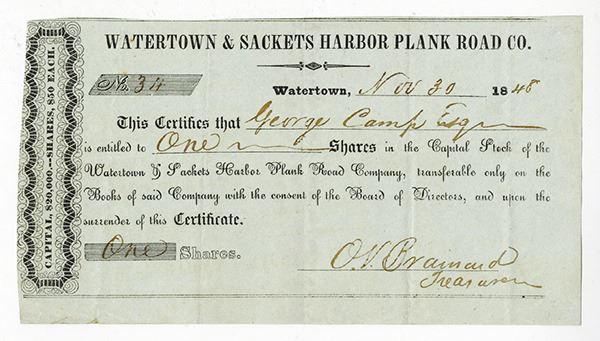 WATERTOWN & SACKETS HARBOR PLANK ROAD CO.
No. 34 Watertown, Nov 30 1848
This Certifies that George Camp Esq
is entitled to One Shares in the Capital Stock of the
Watertown & Sackets Harbor Plank Road Company, transferable only on the
Books of said Company with the consent of the Board of Directors, and upon the
surrender of this Certificate.
One Shares.
O.V. Brainard
Treasurer
CAPITAL, $20,000.—SHARES, $50 EACH.